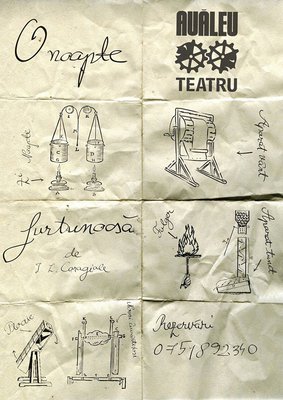 O noapte
AUĂLEU
TEATRU
Zi Noapte
Aparat vânt
furtunoasă
de
I. L. Caragiale
Fulger
Aparat tunet
Ploaie
Rezervări
0751892340